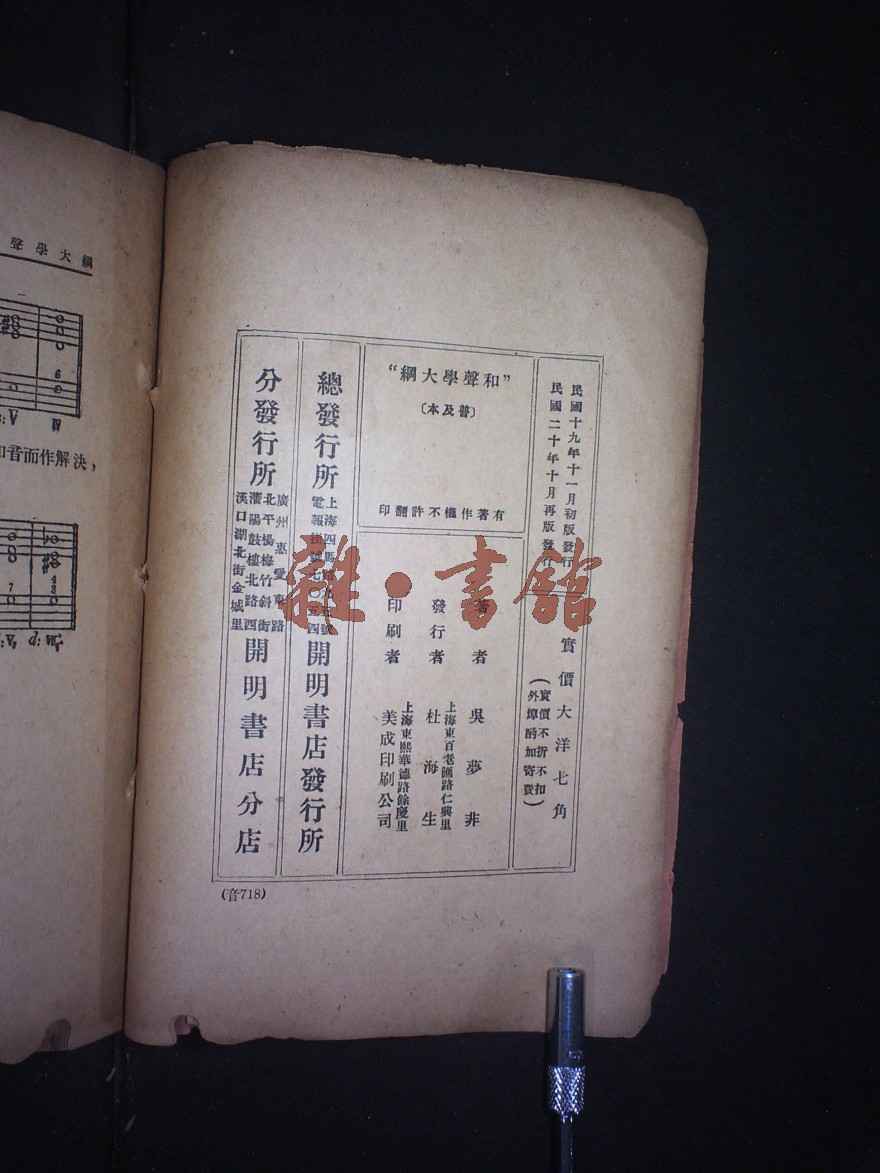 民國十九年十一月初版發行
民國二十年十月再版發行
實價大洋七角
（實價不折不扣
外埠酌加寄費）
“和聲學大綱”
〔普及本〕
有著作權不許翻印
著者 吳夢非
發行者 杜海生
上海東百老匯路仁興里
印刷者 美成印刷公司
上海東熙華德路餘慶里
總發行所
上海四馬路
號
電報掛號七〇五四
開明書店發行所
分發行所
廣州惠愛東路
北平楊梅竹斜街
瀋陽鼓樓北路西
漢口湖北街金城里
開明書店分店
(音718)
雜·書館
聲學大綱
6
:V IV
和音而作解決，
7
4 3
:V₉ d: VII